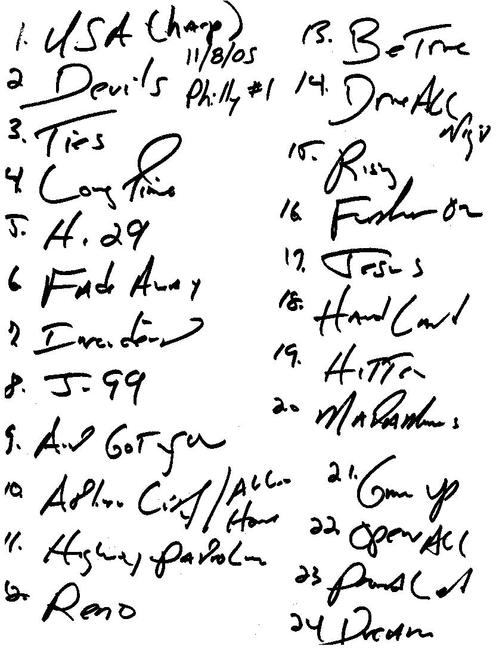 1. USA (harp)
11/8/05
2 Devils Philly #1
3. Ties
4. Long Time
5. H. 29
6 Fade Away
7. Incident
8. J-99
9. Ain't Got You
10. City / All
Home
11. Highway Patrolm
12. Reno
13. Be True
14. Drive All
Nigt
15. Risng
16. Further On
17. Jesus
18. Hard Land
19. Hitter
20.
21. Goin up
22. Open All
23 Promised
24 Dream